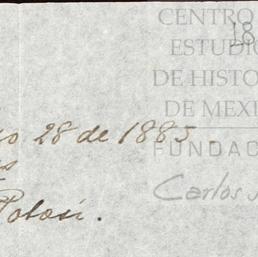 CENTRO
18
ESTUDIO
DE HISTO
DE MEXI
o 28 de 1885.
FUNDAC
s
Carlos
Potosí.